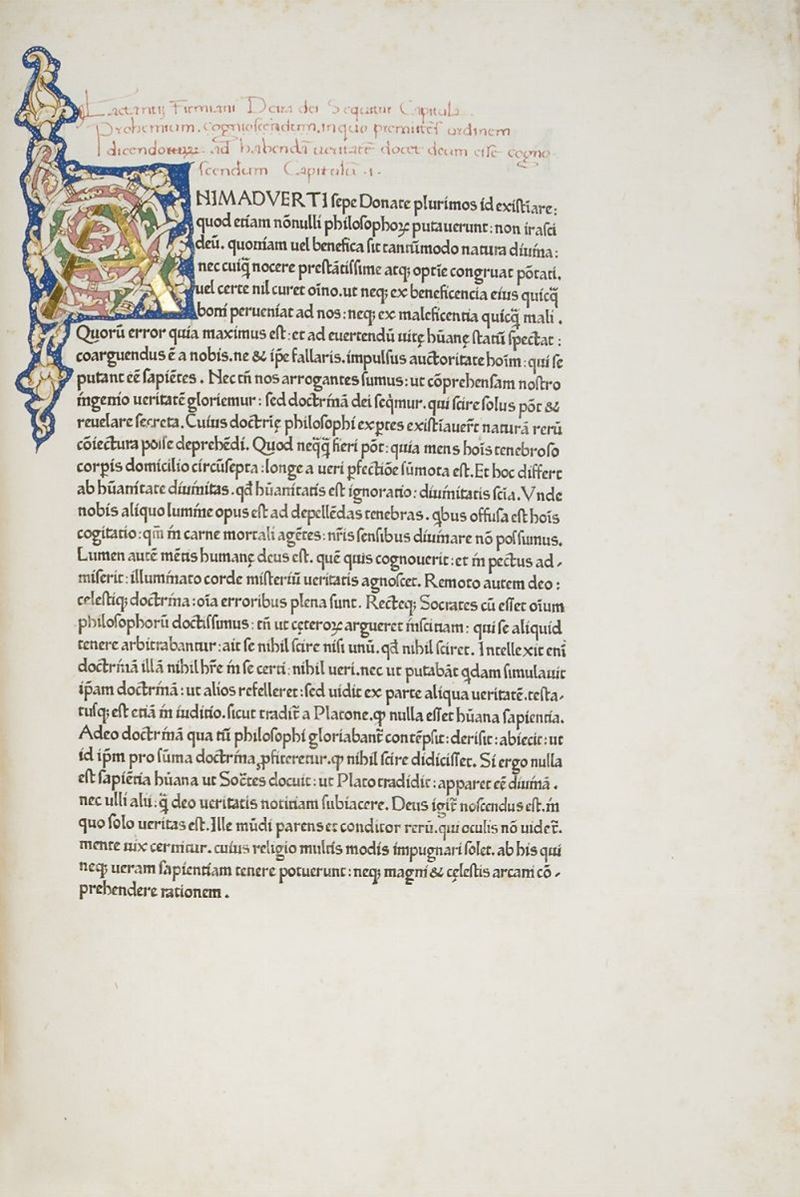 Lactantij Firmiani De ira dei Sequitur Capitula
Prohemium. cognoscendum, in quo premittēs ordinem
dicendorum. ad habendā ueritatē docet deum esse cogno
scendum Capitulū .1.
ANIMADVERTI sepe Donate plurimos id existiare:
quod etiam nōnulli philosophoꝝ putauerunt: non irasci
deū. quoniam uel benefica sit tantūmodo natura diuina:
nec cuiꝗ̄ nocere prestātissime atqꝫ optīe congruat pōtati.
uel certe nil curet oīno. ut neqꝫ ex beneficencia eius quicꝗ̄
boni perueniat ad nos: neqꝫ ex maleficentia quicꝗ̄ mali .
Quorū error quia maximus est: et ad euertendū uitę hūanę statū spectat :
coarguendus ē a nobis. ne & ip̄e fallaris. impulsus auctoritate hoīm: qui se
putant eē sapiētes . Nec tn̄ nos arrogantes sumus: ut cōprehensam nostro
ingenio ueritatē gloriemur : sed doctrinā dei seqͥmur. qui scire solus pōt &
reuelare secreta. Cuius doctrię philosophi exꝑtes existiauer̄t naturā rerū
cōiectura posse deprehēdi. Quod neqꝗ̄ fieri pōt: quia mens hoīs tenebroso
corꝑis domicilio circūsepta : longe a ueri ꝑfectiōe sūmota est. Et hoc differt
ab hūanitate diuinitas. qđ hūanitatis est ignoratio: diuinitatis scīa. Vnde
nobis aliquo lumine opus est ad depellēdas tenebras . qͥbus offusa est hoīs
cogitatio: qm̄ in carne mortali agētes: nr̄is sensibus diuinare nō possumus.
Lumen autē mētis humanę deus est. quē quis cognouerit: et in pectus ad-
miserit: illuminato corde misteriū ueritatis agnoscet. Remoto autem deo :
celestiqꝫ doctrina: oīa erroribus plena sunt. Recteqꝫ Socrates cū esset oīum
philosophorū doctissimus: tn̄ ut cęteroꝝ argueret inscitiam: qui se aliquid
tenere arbitrabantur: ait se nihil scire nisi unū. qđ nihil sciret. Intellexit enī
doctrinā illā nihil hr̄e in se certi: nihil ueri. nec ut putabāt qͥdam simulauit
ip̄am doctrinā : ut alios refelleret : sed uidit ex parte aliqua ueritatē. testa-
tusqꝫ est etiā in iuditio. sicut tradit̄ a Platone. ꝙ nulla esset hūana sapientia.
Adeo doctrinā qua tū philosophi gloriabant̄ contēpsit: derisit: abiecit: ut
id ip̄m pro sūma doctrina ꝓfiteretur. ꝙ nihil scire didicisset. Si ergo nulla
est sapiētia hūana ut Socr̄tes docuit: ut Plato tradidit: apparet eē diuinā .
nec ulli alii: ꝗ̄ deo ueritatis notitiam subiacere. Deus igit̄ noscendus est. in
quo solo ueritas est. Ille mūdi parens et conditor rerū. qui oculis nō uidet̄.
mente uix cernitur. cuius religio multis modis impugnari solet. ab his qui
neqꝫ ueram sapientiam tenere potuerunt: neqꝫ magni & cęlestis arcani cō-
prehendere rationem .